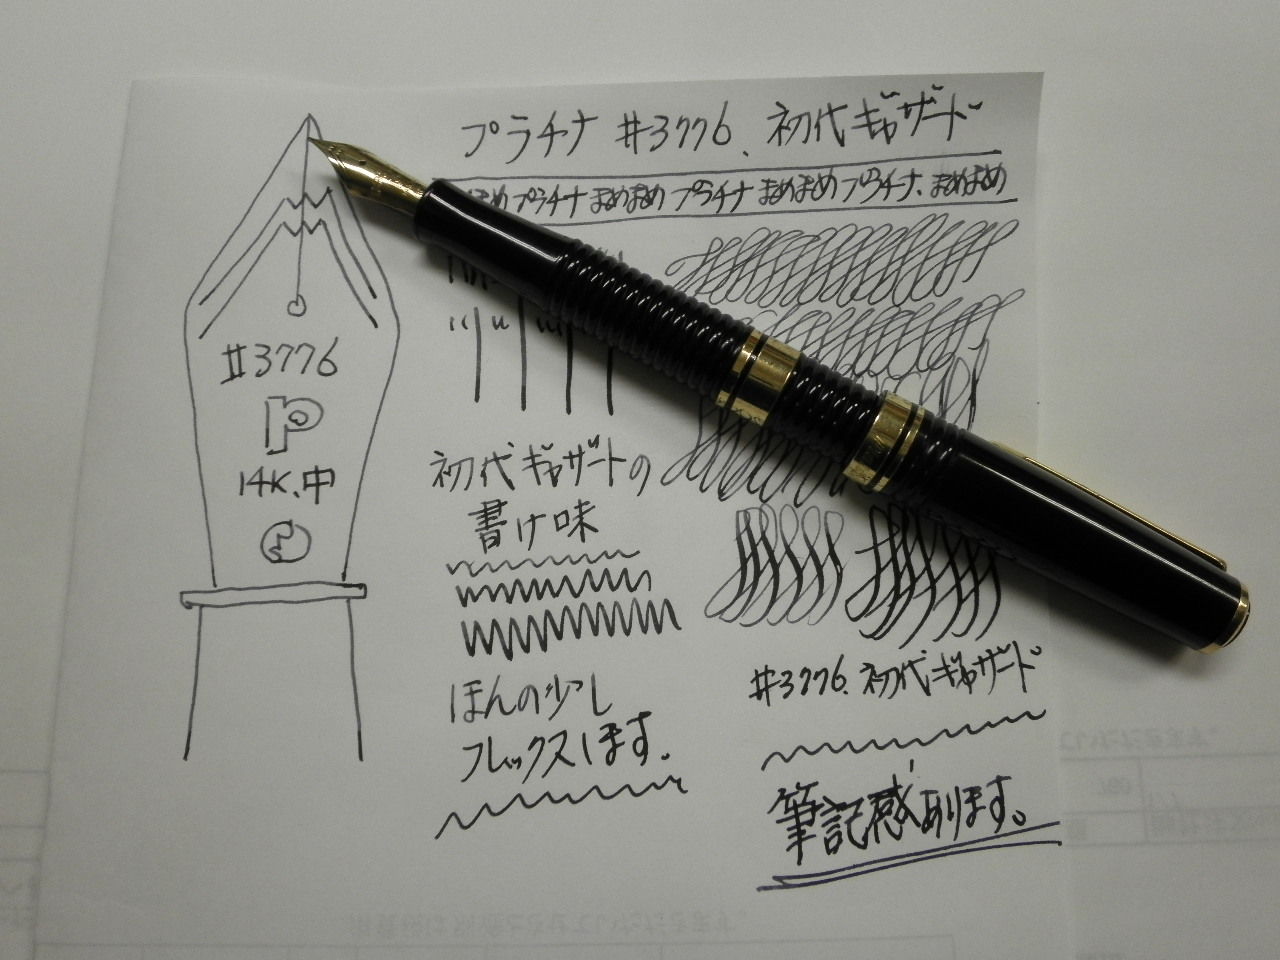 プラチナ #3776、初代ギャザード
まめ プラチナ まめまめ プラチナ まめまめ プラチナ、まめまめ
#3776
P
14K、中
初代ギャザートの
書け味
ほんの少し
フレックスします。
#3776、初代ギャザード
筆記感あります。